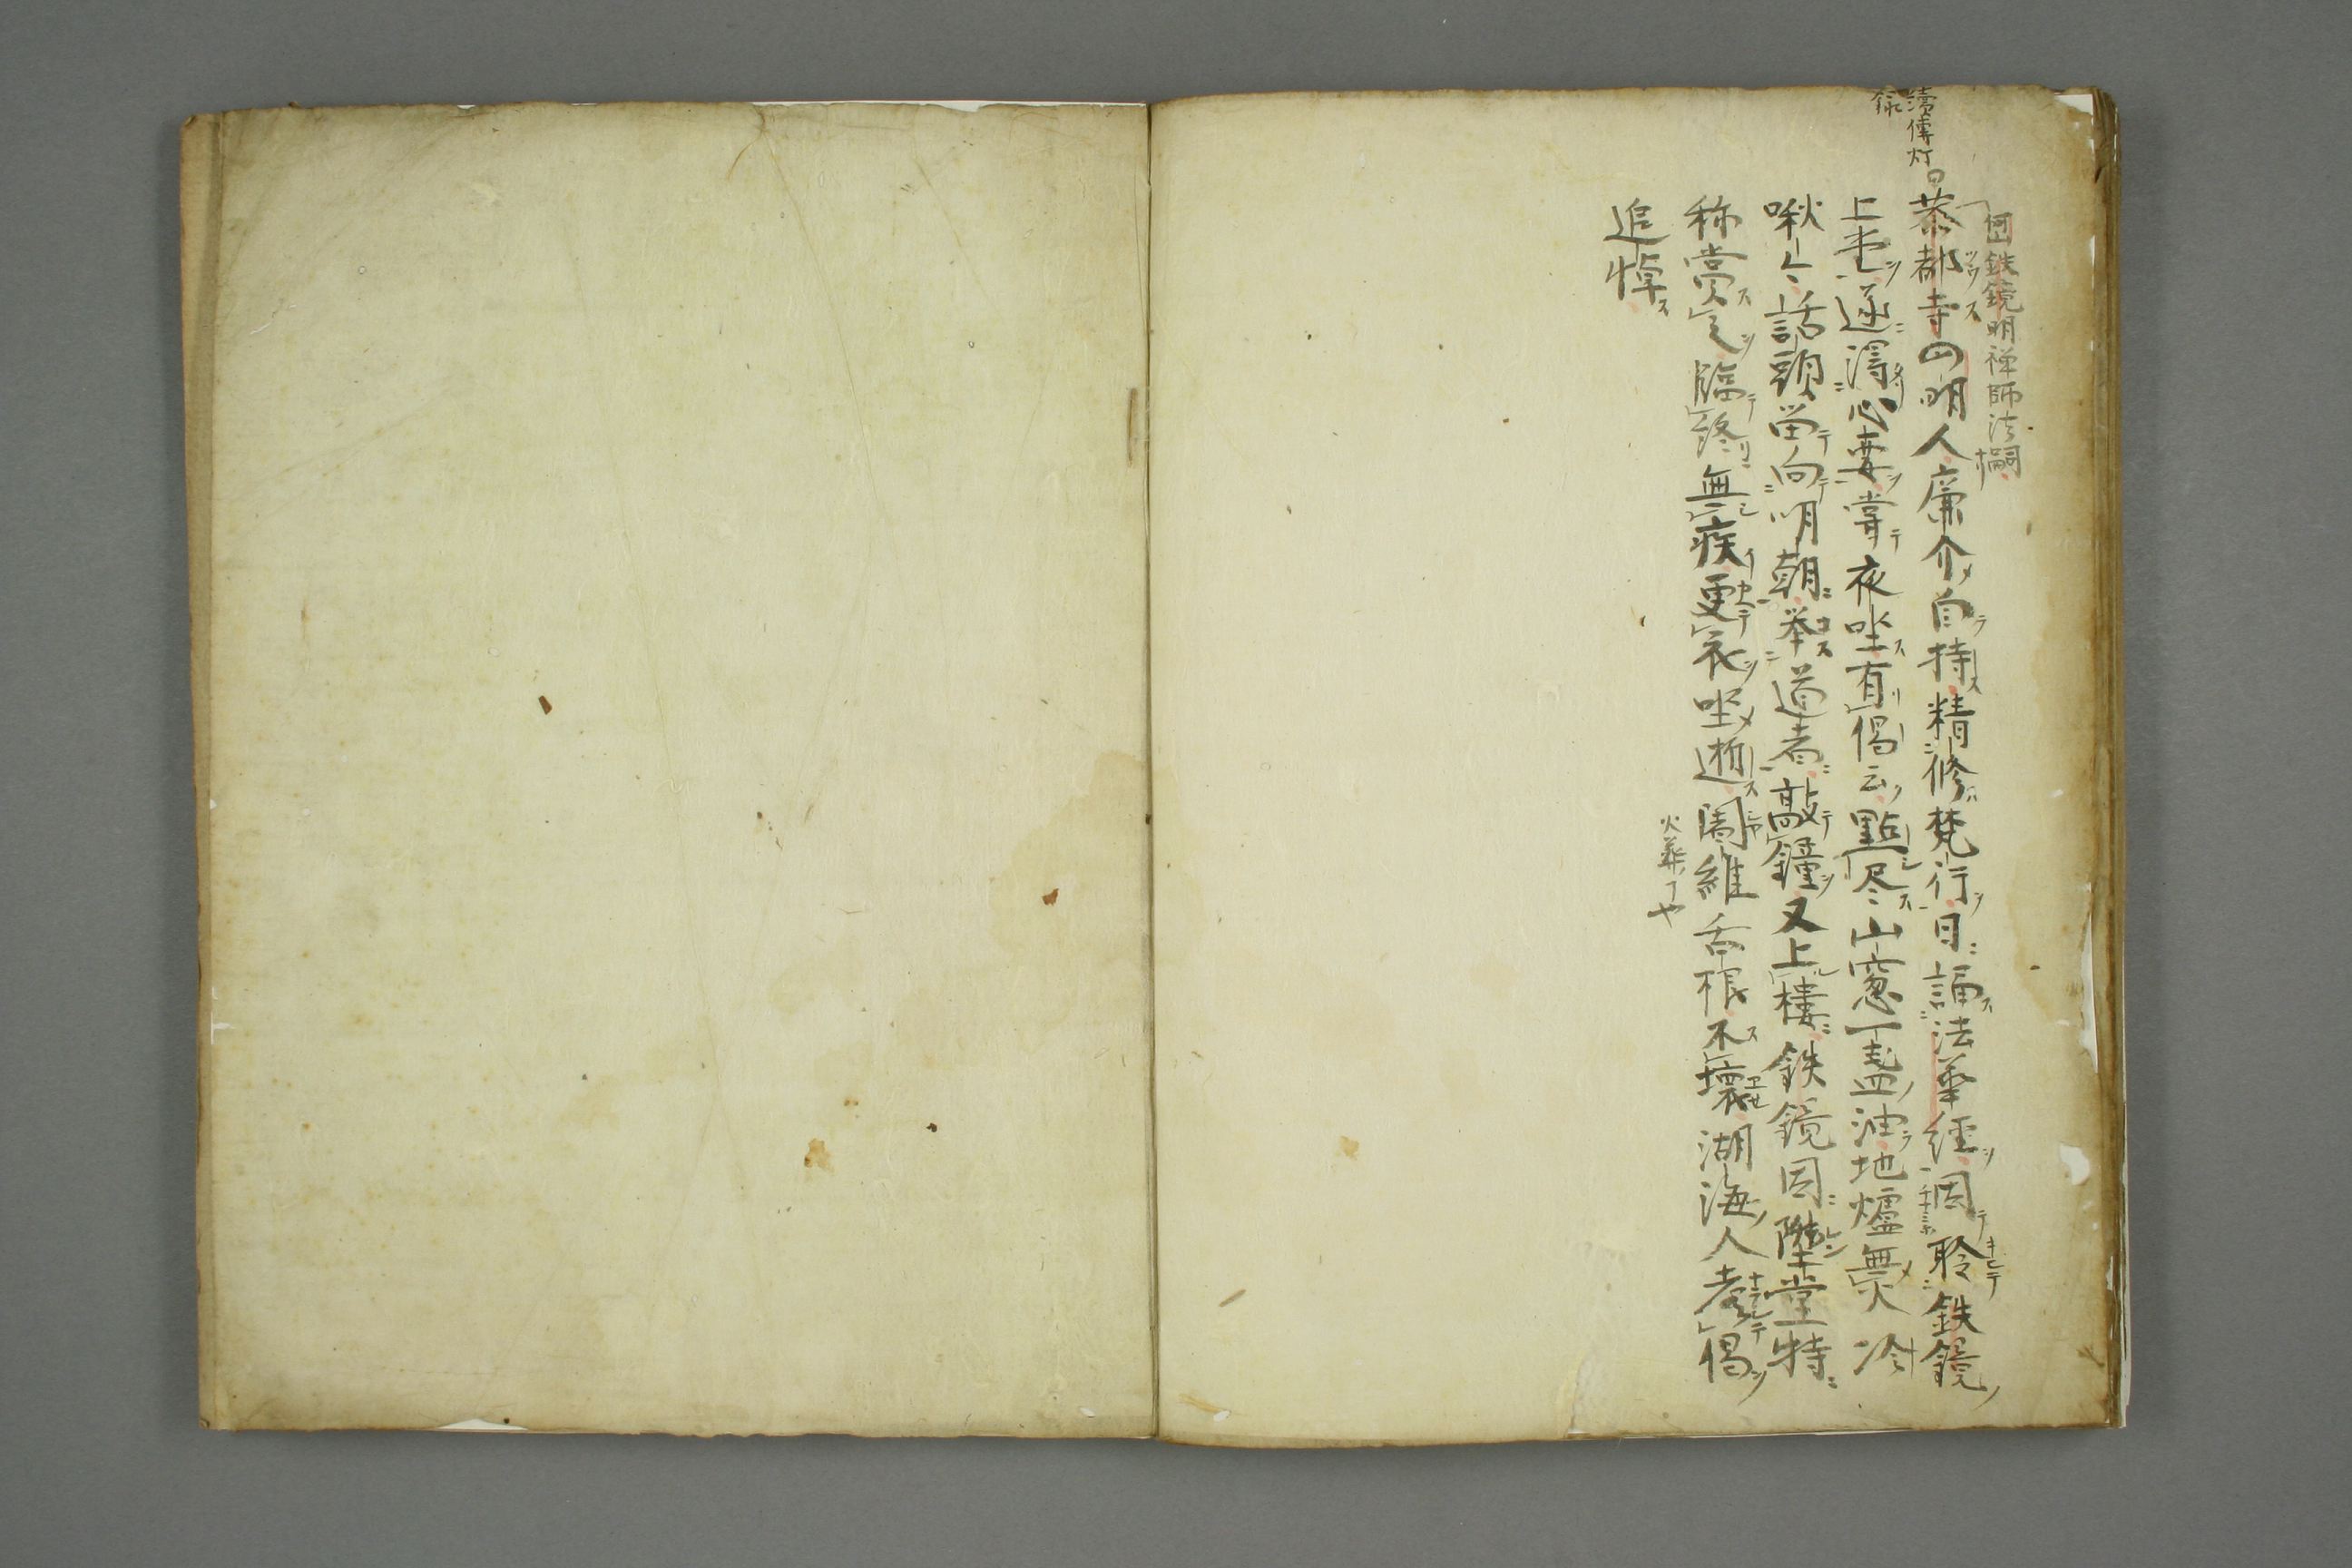 續傳灯
錄
鉄鏡明禅師法嗣
恭都寺四明人廉介自持精修梵行日誦法華経因聆鉄鏡
上堂遂得心要嘗夜坐有偈云點尽山窓一盞油地爐無火冷
啾々話頭留向明朝挙道者敲鐘又上楼鉄鏡因陞堂特
称賞之臨終無疾更衣坐逝闍維舌根不壊湖海人老偈
火葬了也
追悼ス